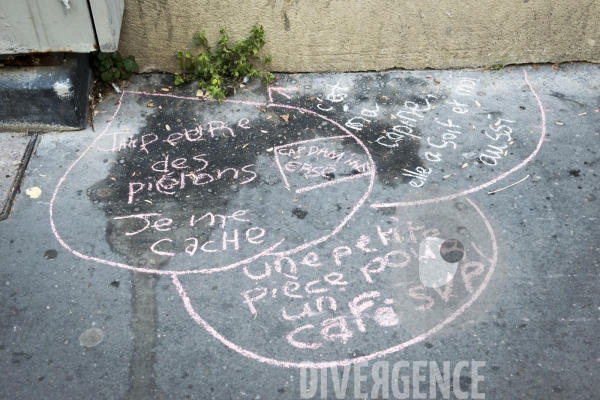 J'ai peur
des
piétons
Je me
cache
c'est
ma
copine
elle a soif et moi
aussi
une petite
pièce pour
un
café SVP
DIVERGENCE